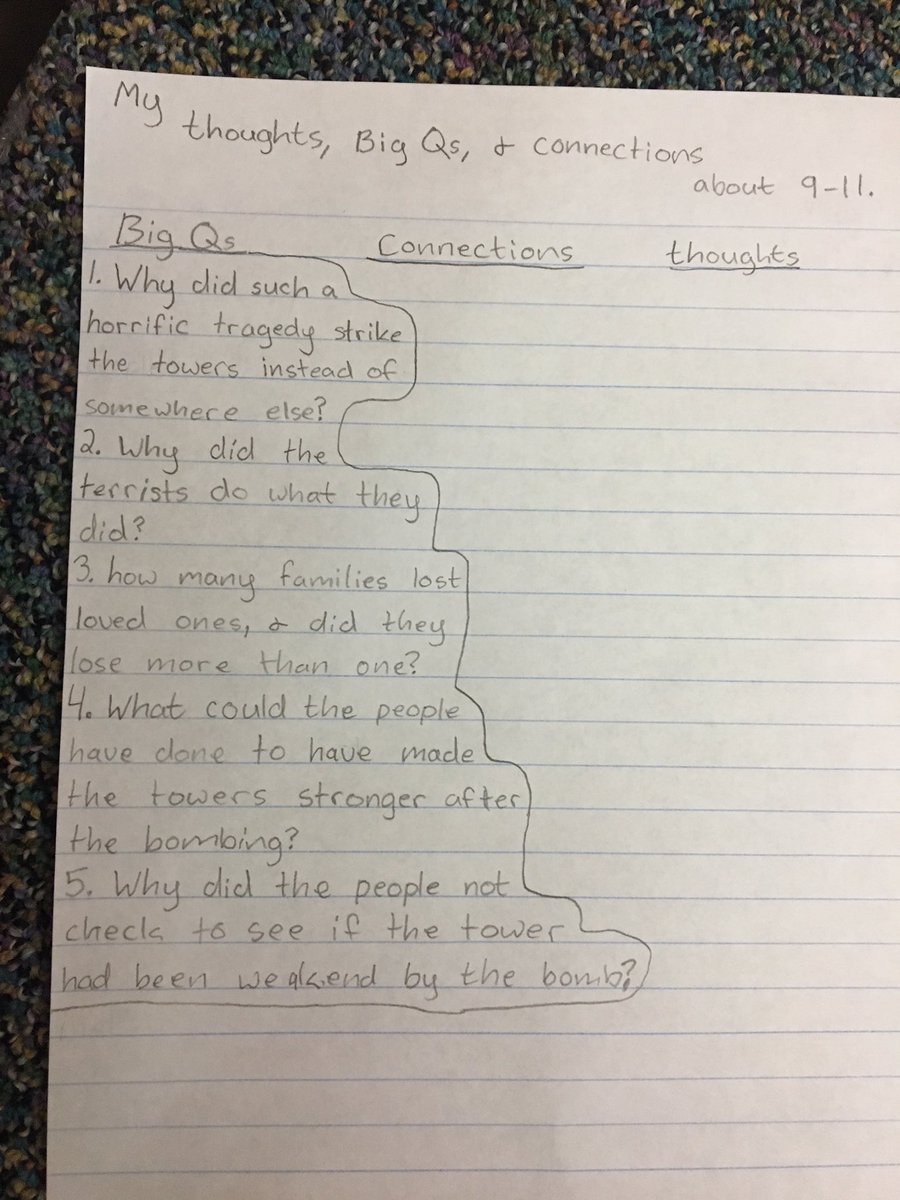 My
thoughts, Big Qs, & connections
about 9-11.
Big Qs
Connections
thoughts
1. Why did such a
horrific tragedy strike
the towers instead of
somewhere else?
2. Why did the
terrists do what they
did?
3. how many families lost
loved ones, & did they
lose more than one?
4. What could the people
have done to have made
the towers stronger after
the bombing?
5. Why did the people not
check to see if the tower
had been weakend by the bomb?